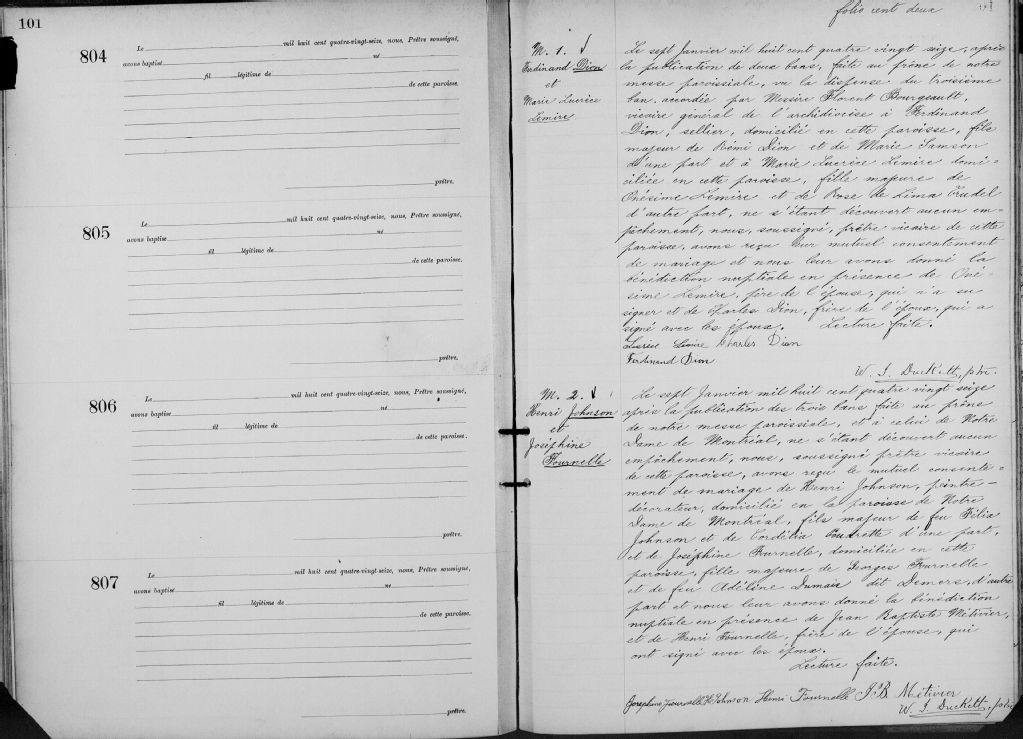 101
804
Le mil huit cent quatre-vingt-seize, nous, Prêtre soussigné,
avons baptisé né
fil légitime de
de cette paroisse.
prêtre.
805
Le mil huit cent quatre-vingt-seize, nous, Prêtre soussigné,
avons baptisé né
fil légitime de
de cette paroisse.
prêtre.
806
Le mil huit cent quatre-vingt-seize, nous, Prêtre soussigné,
avons baptisé né
fil légitime de
de cette paroisse.
prêtre.
807
Le mil huit cent quatre-vingt-seize, nous, Prêtre soussigné,
avons baptisé né
fil légitime de
de cette paroisse.
prêtre.
folio cent deux
M. 1.
Ferdinand Dion
et
Marie Lucrèce
Lemire
Le sept Janvier mil huit cent quatre vingt seize, après
la publication de deux bans, faite au prône de notre
messe paroissiale, vu la dispense du troisième
ban accordée par Messire Florent Bourgeault,
vicaire général de l'archidiocèse à Ferdinand
Dion, sellier, domicilié en cette paroisse, fils
majeur de Rémi Dion et de Marie Samson
d'une part et à Marie Lucrèce Lemire domi-
ciliée en cette paroisse, fille majeure de
Onésime Lemire et de Rose de Lima Trudel
d'autre part, ne s'étant découvert aucun em-
pêchement, nous, soussigné, prêtre vicaire de cette
paroisse, avons reçu leur mutuel consentement
de mariage et nous leur avons donné la
bénédiction nuptiale en présence de Oné-
sime Lemire, père de l'épouse, qui n'a su
signer et de Charles Dion, frère de l'époux, qui a
signé avec les époux. Lecture faite.
Lucrèce Lemire Charles Dion
Ferdinand Dion
W. J. Duckett, ptre.
M. 2.
Henri Johnson
et
Joséphine
Fournelle
Le sept Janvier mil huit cent quatre vingt seize
après la publication des trois bans faite au prône
de notre messe paroissiale, et à celui de Notre
Dame de Montréal, ne s'étant découvert aucun
empêchement, nous, soussigné prêtre vicaire
de cette paroisse, avons reçu le mutuel consente-
ment de mariage de Henri Johnson, peintre-
décorateur, domicilié en la paroisse de Notre
Dame de Montréal, fils majeur de feu Filia
Johnson et de Cordélia Poudrette d'une part,
et de Joséphine Fournelle, domiciliée en cette
paroisse, fille majeure de Georges Fournelle
et de feu Adéline Dumais dit Demers, d'autre
part et nous leur avons donné la bénédiction
nuptiale en présence de Jean Baptiste Métivier,
et de Henri Fournelle, frère de l'épouse, qui
ont signé avec les époux.
Lecture faite.
Joséphine Fournelle H. Johnson Henri Fournelle J B Métivier
W. J. Duckett, ptre